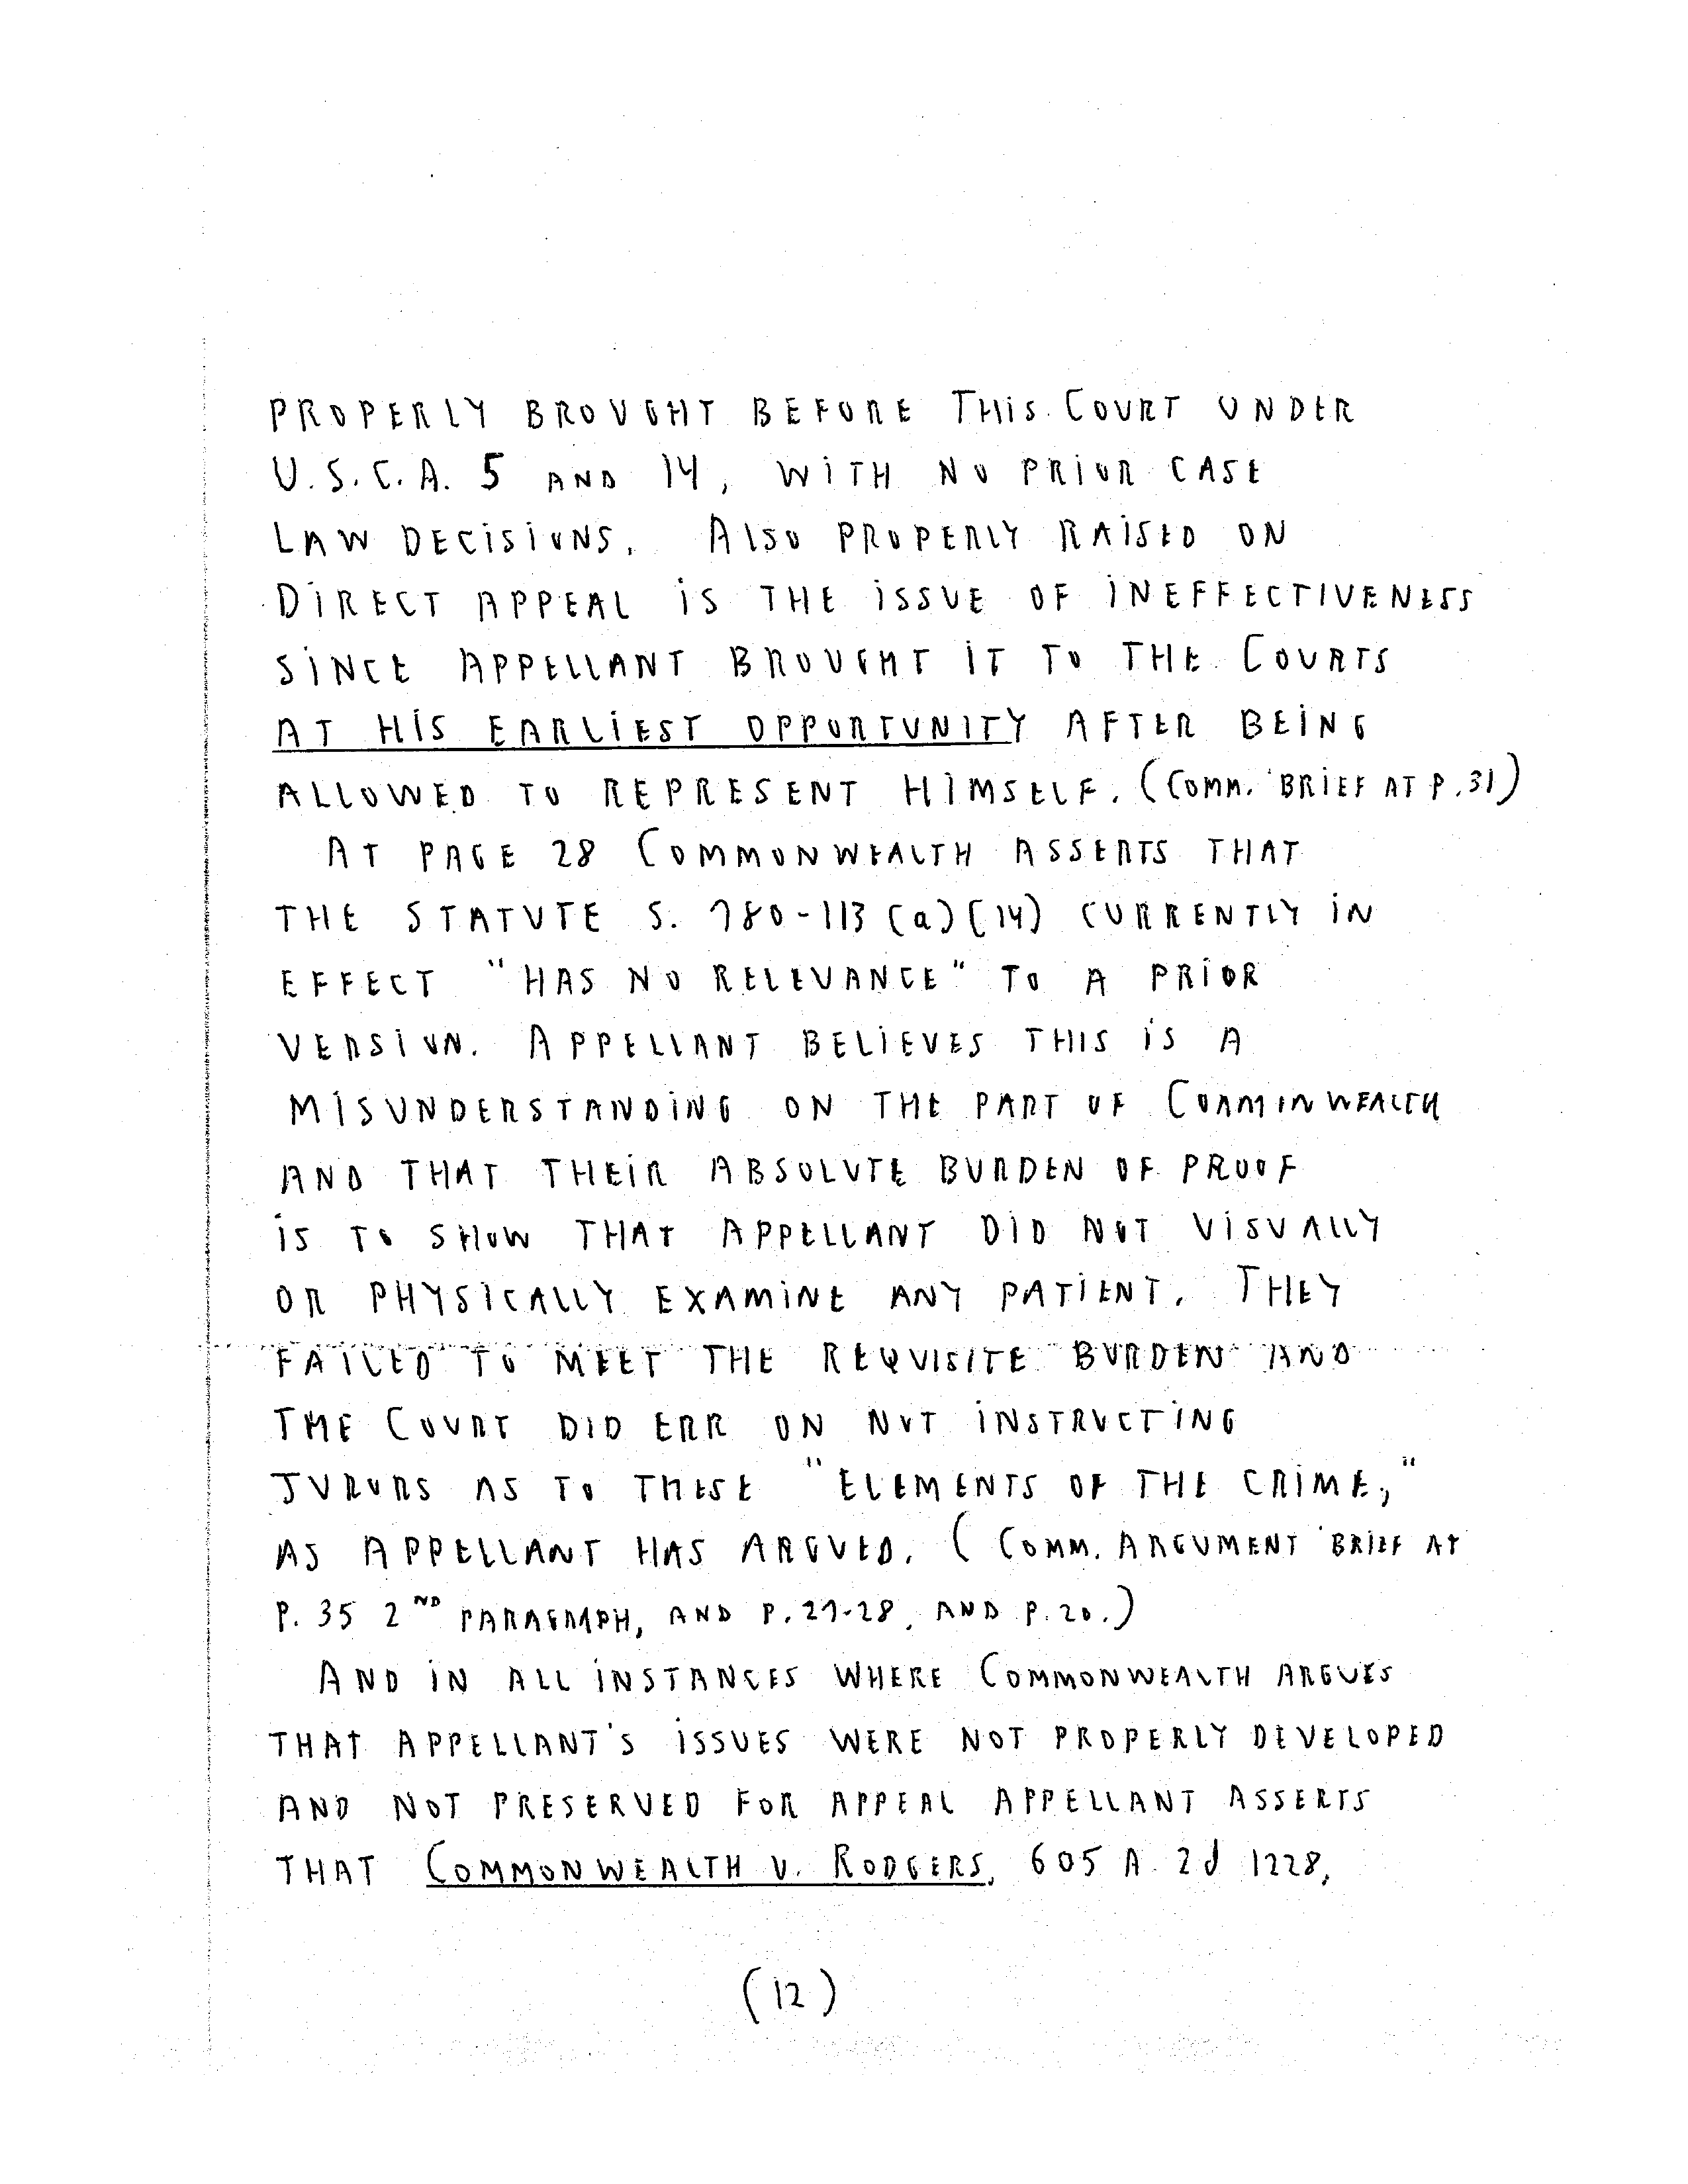 PROPERLY BROUGHT BEFORE THiS COURT UNDER
U.S.C.A. 5 AND 14, WITH NO PRIOR CASE
LAW DECISIONS. ALSO PROPERLY RAISED ON
DIRECT APPEAL IS THE ISSUE OF INEFFECTIVENESS
SINCE APPELLANT BROUGHT IT TO THE COURTS
AT HIS EARLIEST OPPORTUNITY AFTER BEING
ALLOWED TO REPRESENT HIMSELF. (COMM. BRIEF AT P.31)
AT PAGE 28 COMMONWEALTH ASSERTS THAT
THE STATUTE S. 780-113 (a)(14) CURRENTLY IN
EFFECT "HAS NO RELEVANCE" TO A PRIOR
VERSION. APPELLANT BELIEVES THIS IS A
MISUNDERSTANDING ON THE PART OF COMMINWEALTH
AND THAT THEIR ABSOLUTE BURDEN OF PROOF
IS TO SHOW THAT APPELLANT DID NOT VISUALLY
OR PHYSICALLY EXAMINE ANY PATIENT. THEY
FAILED TO MEET THE REQUISITE BURDEN AND
THE COURT DID ERR ON NOT INSTRUCTING
JURORS AS TO THESE "ELEMENTS OF THE CRIME,"
AS APPELLANT HAS ARGUED. (COMM. ARGUMENT BRIEF AT
P. 35 2ND PARAGRAPH, AND P.27-28, AND P.20.)
AND IN ALL INSTANCES WHERE COMMONWEALTH ARGUES
THAT APPELLANT'S ISSUES WERE NOT PROPERLY DEVELOPED
AND NOT PRESERVED FOR APPEAL APPELLANT ASSERTS
THAT COMMONWEALTH V. RODGERS, 605 A.2d 1228,
(12)